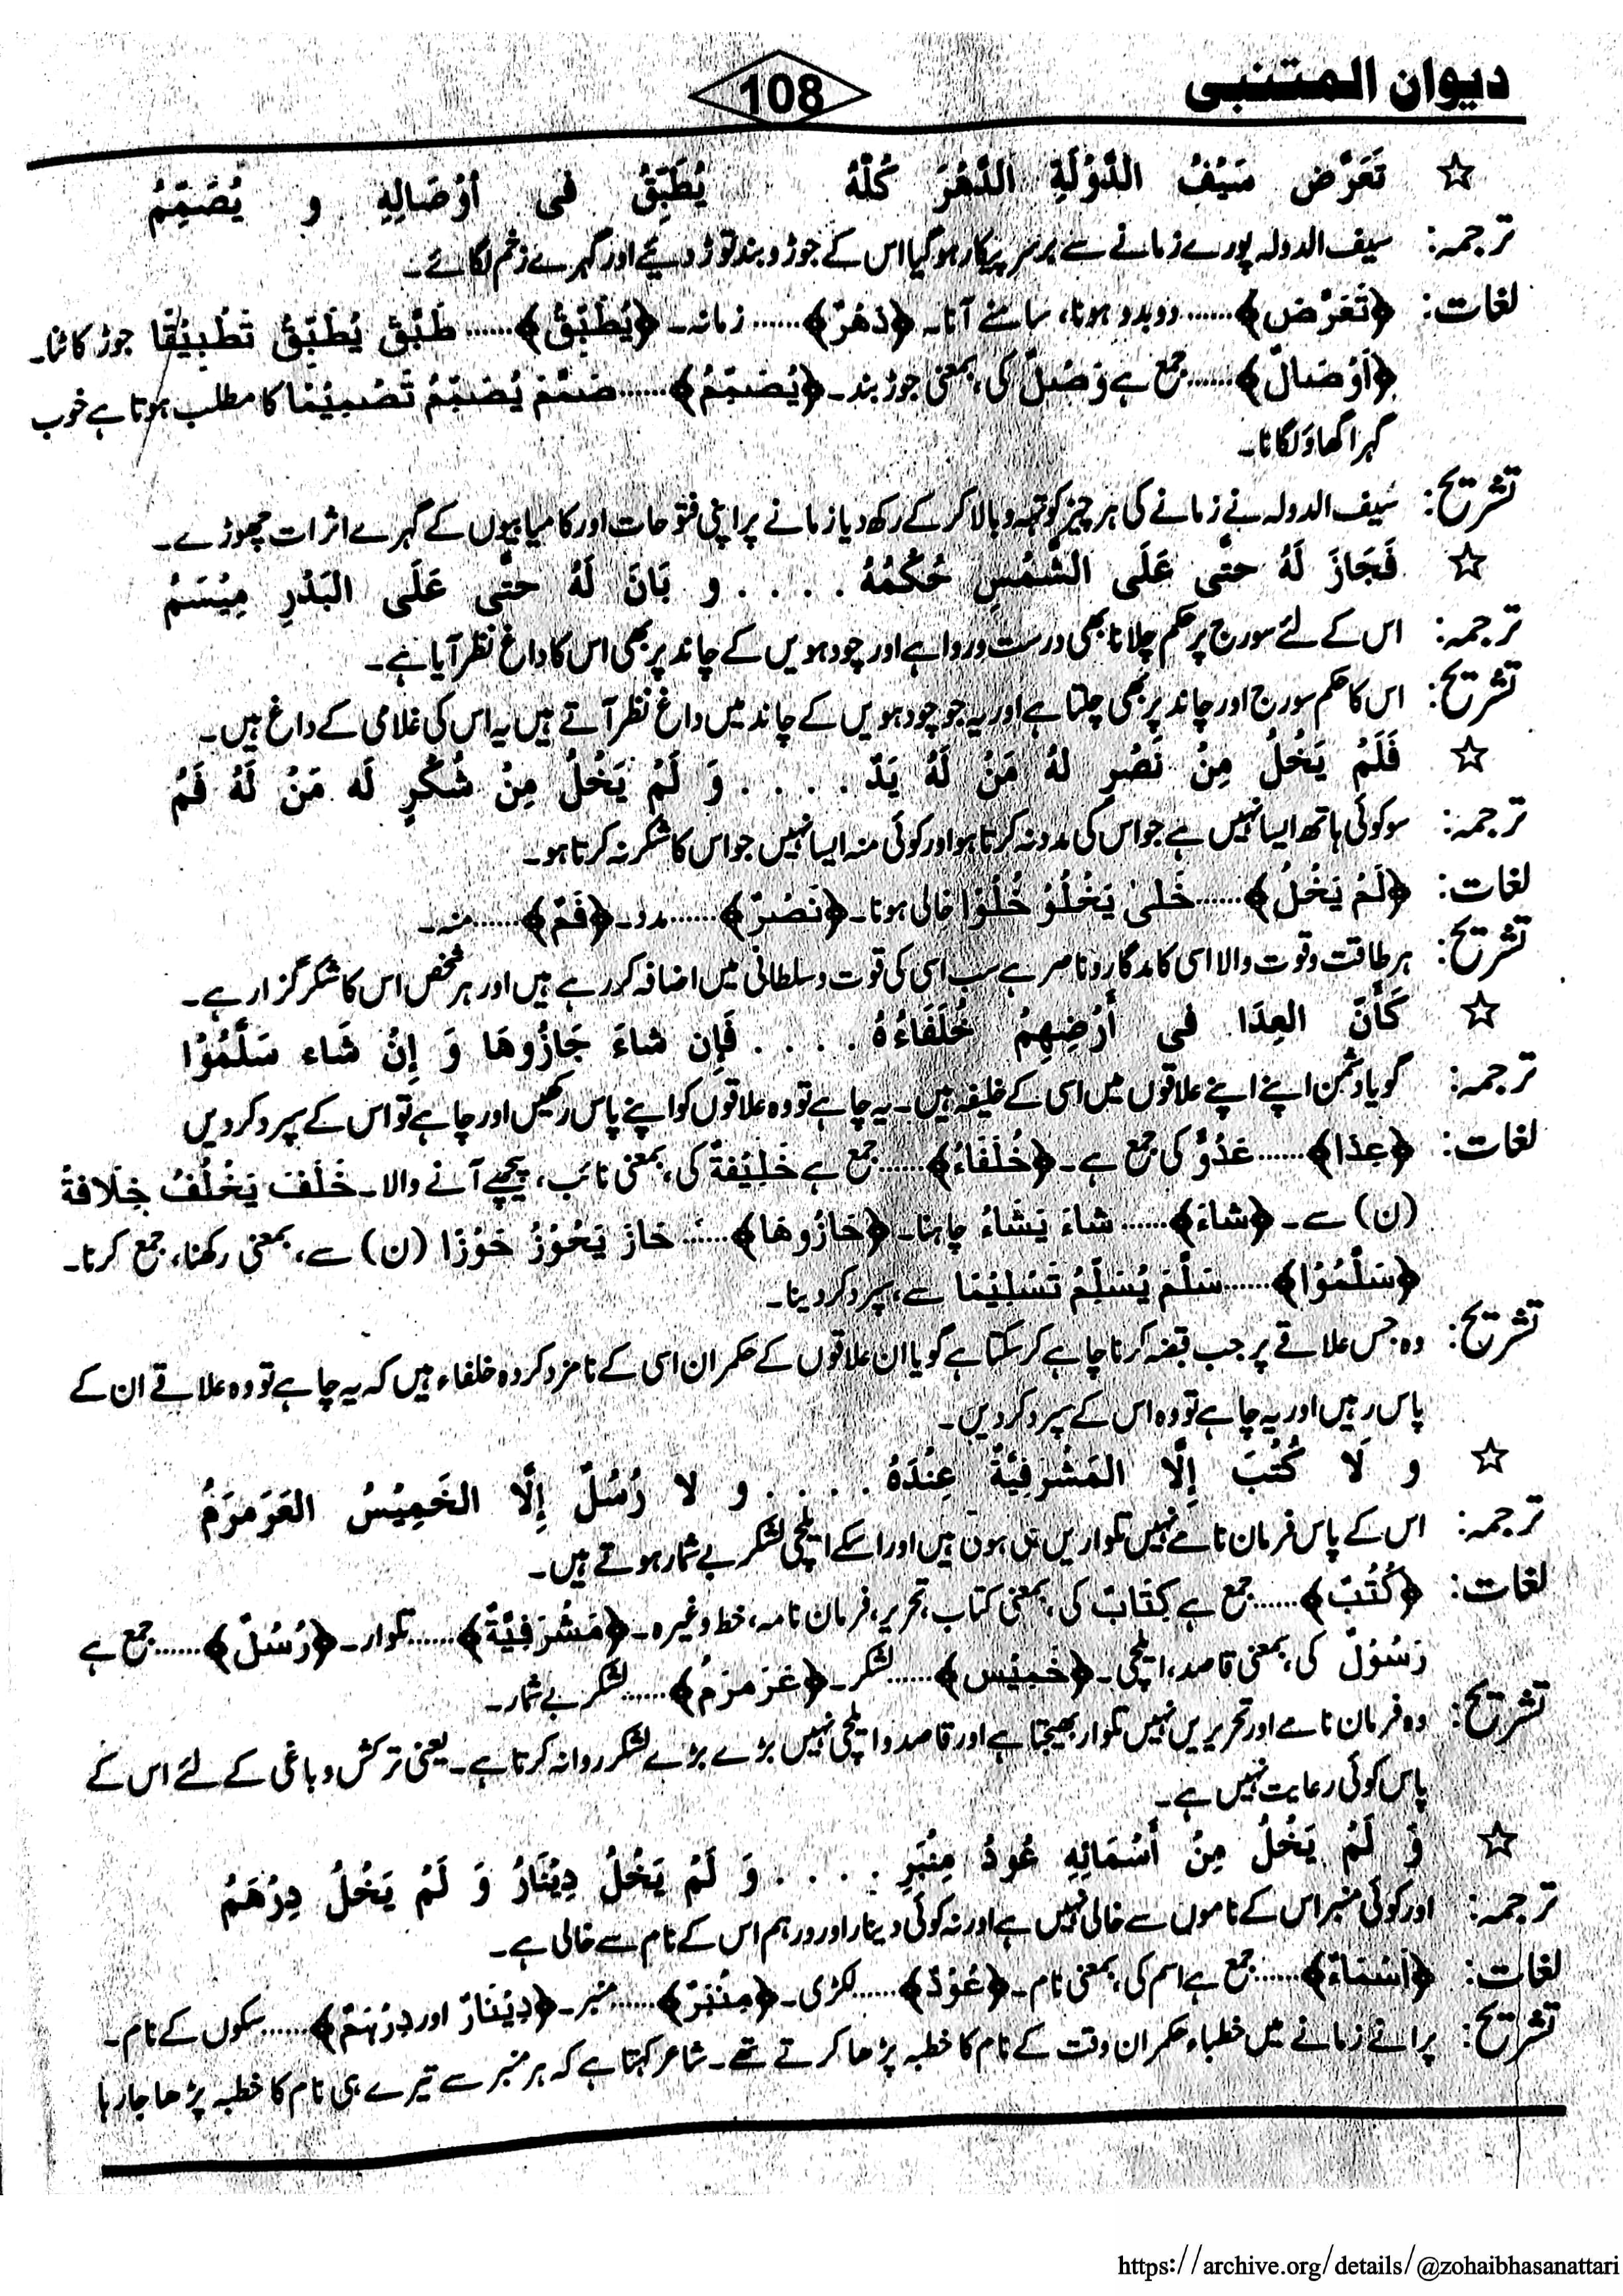 دیوان المتنبی
108
☆ تَعَرَّضَ سَيْفُ الدَّوْلَةِ الدَّهْرَ كُلَّهُ يُطَبِّقُ فى اَوْصَالِهِ و يُصَمِّمُ
ترجمہ: سیف الدولہ پورے زمانے سے برسرِ پیکار ہوگیا اس کے جوڑ و بند توڑ دیئے اور گہرے زخم لگائے۔
لغات: ﴿تَعَرَّض﴾...... دوبدو ہونا، سامنے آنا۔ ﴿دَهْرٌ﴾...... زمانہ۔ ﴿يُطَبِّقُ﴾...... طَبَّقَ يُطَبِّقُ تَطْبِيْقًا جوڑ کاٹنا۔
﴿اَوْصَالٌ﴾...... جمع ہے وَصْلٌ کی، بمعنی جوڑ بند۔ ﴿يُصَمِّمُ﴾...... صَمَّمَ يُصَمِّمُ تَصْمِيْمًا کا مطلب ہوتا ہے خوب
گہرا گھاؤ لگانا۔
تشریح: سیف الدولہ نے زمانے کی ہر چیز کو تہہ و بالا کر کے رکھ دیا زمانے پر اپنی فتوحات اور کامیابیوں کے گہرے اثرات چھوڑے۔
☆ فَجَازَ لَهُ حتّٰى عَلَى الشَّمْسِ حُكْمُهُ . . . . و بَانَ لَهُ حتّٰى عَلَى البَدْرِ مِيْسَمُ
ترجمہ: اس کے لئے سورج پر حکم چلانا بھی درست و روا ہے اور چودہویں کے چاند پر بھی اس کا داغ نظر آیا ہے۔
تشریح: اس کا حکم سورج اور چاند پر بھی چلتا ہے اور یہ جو چودہویں کے چاند میں داغ نظر آتے ہیں یہ اس کی غلامی کے داغ ہیں۔
☆ فَلَمْ يَخْلُ مِنْ نَصْرٍ لهُ مَنْ لَهُ يَدٌ . . . . وَ لَمْ يَخْلُ مِنْ شُكْرٍ لَه مَنْ لَهُ فَمُ
ترجمہ: سو کوئی ہاتھ ایسا نہیں ہے جو اس کی مدد نہ کرتا ہو اور کوئی منہ ایسا نہیں جو اس کا شکر نہ کرتا ہو۔
لغات: ﴿لَمْ يَخْلُ﴾...... خَلىٰ يَخْلُوْ خُلُوًّا خالی ہونا۔ ﴿نَصْرٌ﴾...... مدد۔ ﴿فَمٌ﴾...... منہ۔
تشریح: ہر طاقت و قوت والا اسی کا مددگار و ناصر ہے سب اسی کی قوت و سلطانی میں اضافہ کر رہے ہیں اور ہر شخص اس کا شکر گزار ہے۔
☆ كَأَنَّ العِدَا فى أَرْضِهِمْ خُلَفَاءُهُ . . . . فَإِن شاءَ حَازُوهَا وَ إِنْ شَاء سَلَّمُوْا
ترجمہ: گویا دشمن اپنے اپنے علاقوں میں اسی کے خلیفہ ہیں۔ یہ چاہے تو وہ علاقوں کو اپنے پاس رکھیں اور چاہے تو اس کے سپرد کردیں
لغات: ﴿عِدَا﴾...... عَدُوٌّ کی جمع ہے۔ ﴿خُلَفَاءُ﴾...... جمع ہے خَلِيْفَةٌ کی، بمعنی نائب، پیچھے آنے والا۔ خَلَفَ يَخْلُفُ خِلَافَةً
(ن) سے۔ ﴿شاءَ﴾...... شاءَ يَشَاءُ چاہنا۔ ﴿حَازُوهَا﴾...... حَازَ يَحُوْزُ حَوْزًا (ن) سے، بمعنی رکھنا، جمع کرنا۔
﴿سَلَّمُوْا﴾...... سَلَّمَ يُسَلِّمُ تَسْلِيْمًا سے، سپرد کردینا۔
تشریح: وہ جس علاقے پر جب قبضہ کرنا چاہے کر سکتا ہے گویا ان علاقوں کے حکمران اسی کے نامزد کردہ خلفاء ہیں کہ یہ چاہے تو وہ علاقے ان کے
پاس رہیں اور یہ چاہے تو وہ اس کے سپرد کردیں۔
☆ و لَا كُتُبَ إِلَّا المَشْرَفِيَّةُ عِنْدَهُ . . . . و لا رُسُلٌ إِلَّا الخَمِيْسُ العَرَمرَمُ
ترجمہ: اس کے پاس فرمان نامے نہیں تلواریں ہی ہوتی ہیں اور اسکے ایلچی لشکر بے شمار ہوتے ہیں۔
لغات: ﴿كُتُبٌ﴾...... جمع ہے كِتَابٌ کی، بمعنی کتاب، تحریر، فرمان نامہ، خط وغیرہ۔ ﴿مَشْرَفِيَّةٌ﴾...... تلوار۔ ﴿رُسُلٌ﴾...... جمع ہے
رَسُوْلٌ کی، بمعنی قاصد، ایلچی۔ ﴿خَمِيْس﴾...... لشکر۔ ﴿عَرَمرَمُ﴾...... لشکر بے شمار۔
تشریح: وہ فرمان نامے اور تحریریں نہیں تلوار بھیجتا ہے اور قاصد و ایلچی نہیں بڑے بڑے لشکر روانہ کرتا ہے۔ یعنی ترکش و باغی کے لئے اس کے
پاس کوئی رعایت نہیں ہے۔
☆ وَ لَمْ يَخْلُ مِنْ أَسْمَائِهِ عُودُ مِنْبَرٍ . . . . وَ لَمْ يَخْلُ دِيْنَارٌ وَ لَمْ يَخْلُ دِرْهَمُ
ترجمہ: اور کوئی منبر اس کے ناموں سے خالی نہیں ہے اور نہ کوئی دینار اور درہم اس کے نام سے خالی ہے۔
لغات: ﴿اَسْمَاءٌ﴾...... جمع ہے اسم کی، بمعنی نام۔ ﴿عُوْدٌ﴾...... لکڑی۔ ﴿مِنْبَرٌ﴾...... منبر۔ ﴿دِيْنَارٌ اور دِرْهَمٌ﴾...... سکوں کے نام۔
تشریح: پرانے زمانے میں خطباء حکمران وقت کے نام کا خطبہ پڑھا کرتے تھے۔ شاعر کہتا ہے کہ ہر منبر سے تیرے ہی نام کا خطبہ پڑھا جا رہا
https://archive.org/details/@zohaibhasanattari